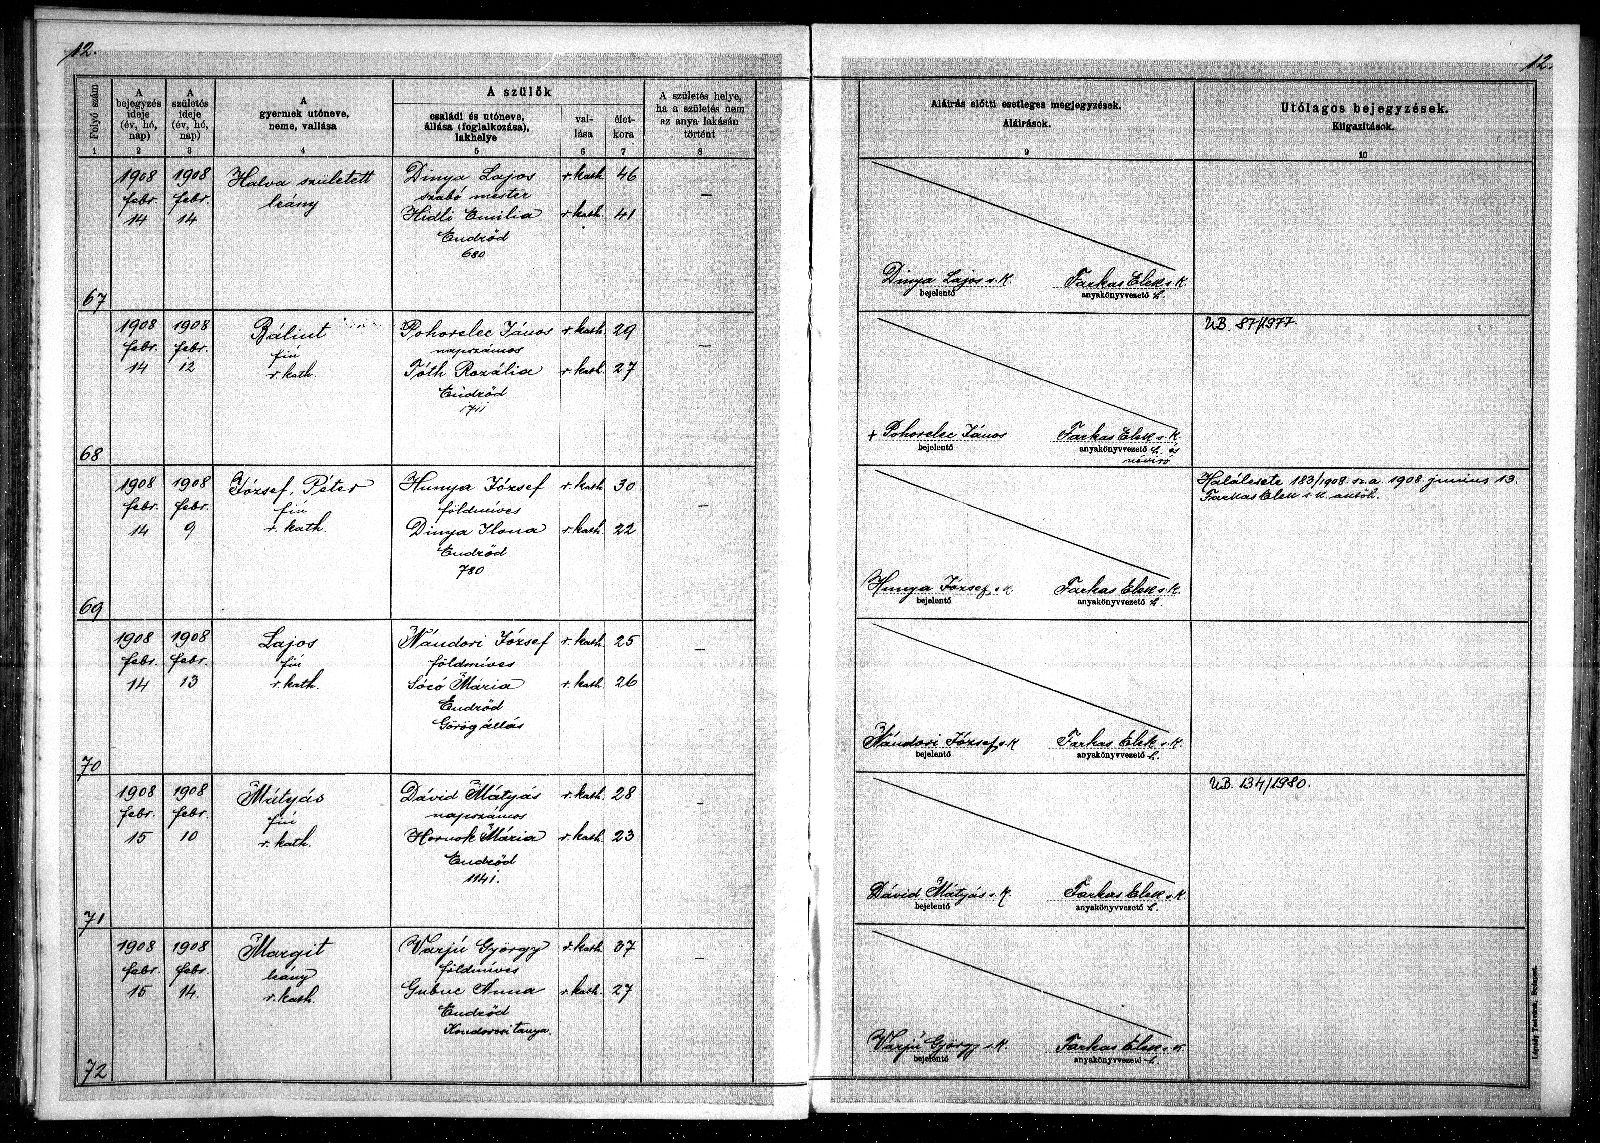 12.
12.
Folyó szám
A bejegyzés ideje (év, hó, nap)
A születés ideje (év, hó, nap)
A gyermek utóneve, neme, vallása
A szülők
családi és utóneve, állása (foglalkozása), lakhelye
vallása
életkora
A születés helye, ha a születés nem az anya lakásán történt
Aláírás előtti esetleges megjegyzések.
Aláírások.
Utólagos bejegyzések.
Kiigazítások.
1 2 3 4 5 6 7 8 9 10
1908 1908 Halva született Dinya Lajos r. kath. 46
febr. febr. leány szabó mester
14 14 Hidli Emilia r. kath. 41
Endrőd
680
67
Dinya Lajos s. k. Farkas Elek s. k.
bejelentő anyakönyvvezető h.
1908 1908 Bálint Pohorelec János r. kath. 29
febr. febr. fiú napszámos
14 12 r. kath. Tóth Rozália r. kath. 27
Endrőd
1711
68
UB. 87/1977.
+ Pohorelec János Farkas Elek s. k.
bejelentő anyakönyvvezető h. és
névíró
1908 1908 József, Péter Hunya József r. kath. 30
febr. febr. fiú földmíves
14 9 r. kath. Dinya Ilona r. kath. 22
Endrőd
780
69
Halálesete 183/1908. sz. a. 1908. június 13.
Farkas Elek s. k. akvh.
Hunya József s. k. Farkas Elek s. k.
bejelentő anyakönyvvezető h.
1908 1908 Lajos Nándori József r. kath. 25
febr. febr. fiú földmíves
14 13 r. kath. Sócó Mária r. kath. 26
Endrőd
Görögállás
70
Nándori József s. k. Farkas Elek s. k.
bejelentő anyakönyvvezető h.
1908 1908 Mátyás Dávid Mátyás r. kath. 28
febr. febr. fiú napszámos
15 10 r. kath. Hornok Mária r. kath. 23
Endrőd
1141.
71
UB. 134/1980.
Dávid Mátyás s. k. Farkas Elek s. k.
bejelentő anyakönyvvezető h.
1908 1908 Margit Varjú György r. kath. 37
febr. febr. leány földmíves
15 14. r. kath. Gubuc Anna r. kath. 27
Endrőd
Kondorosi tanya.
72
Varjú György s. k. Farkas Elek s. k.
bejelentő anyakönyvvezető h.